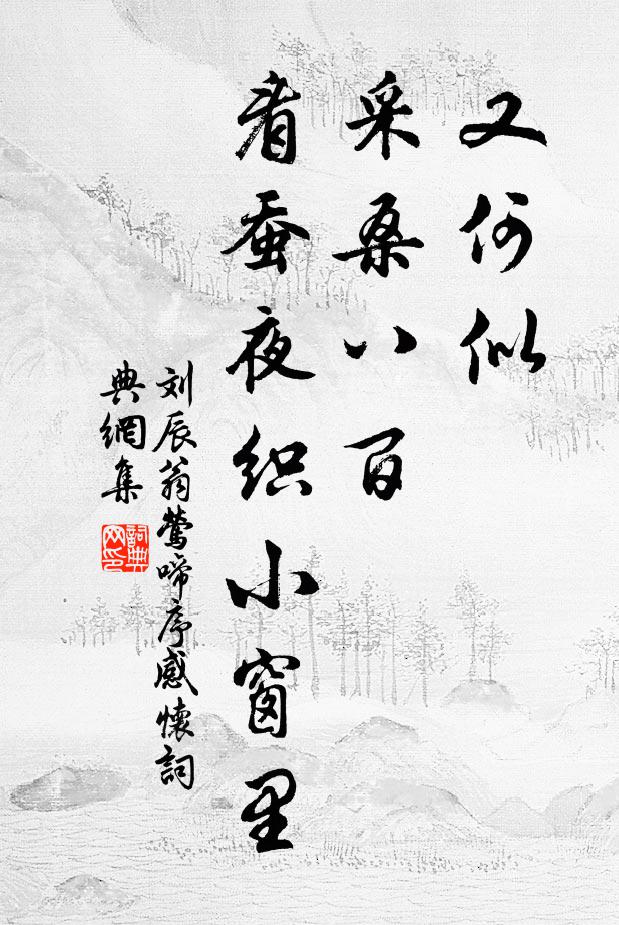 又何似
采桑八百
看蚕夜织小窗里
刘辰翁莺啼序感懷詞
典網集
詞典网印